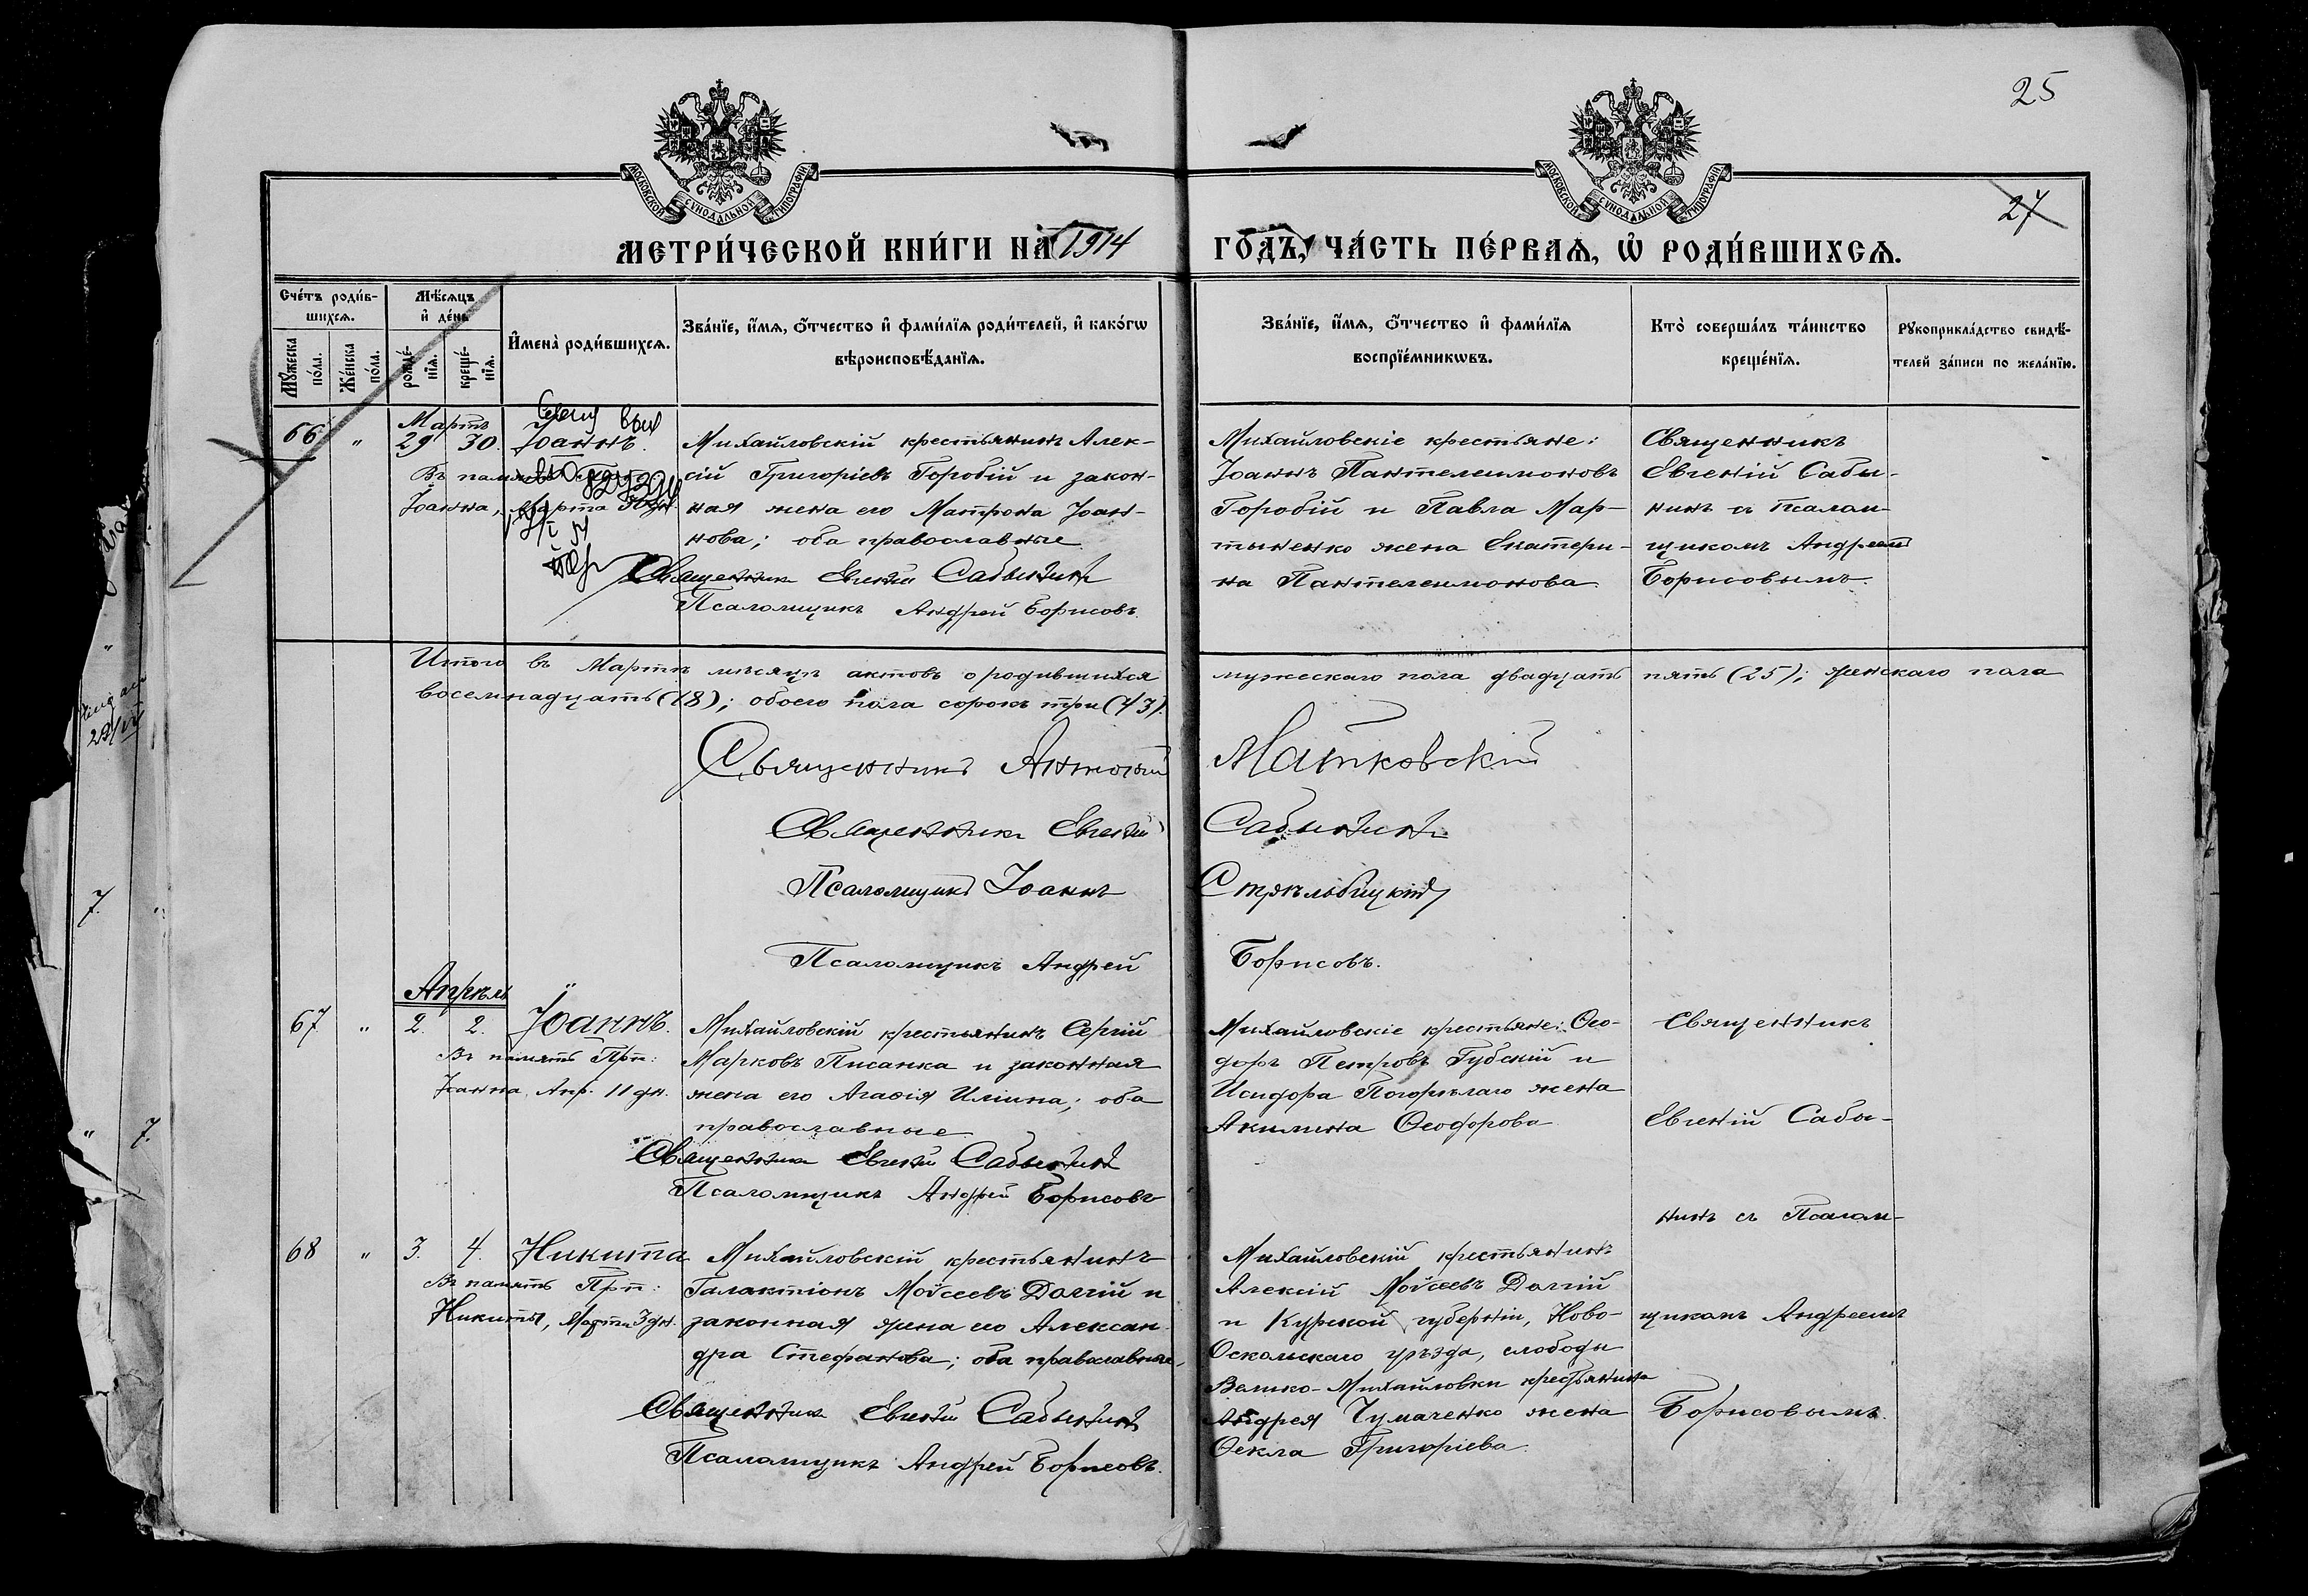 25
27
МОСКОВСКОЙ СѴНОДАЛЬНОЙ ТИПОГРАФІИ
МОСКОВСКОЙ СѴНОДАЛЬНОЙ ТИПОГРАФІИ
МЕТРИ́ЧЕСКОЙ КНИ́ГИ НА 1914 ГО́ДЪ, ЧА́СТЬ ПЕ́РВАѦ, Ѡ҆ РОДИ́ВШИХСѦ.
Сче́тъ роди́в-
шихсѧ.
Мꙋ́жеска по́ла.
Же́нска по́ла.
Мѣ́сѧцъ
и҆ де́нь
рожде́-
нїѧ.
креще́-
нїѧ.
И҆мена̀ роди́вшихсѧ.
Зва́нїе, и҆́мѧ, ѻ҆́тчество и҆ фами́лїѧ роди́телей, и҆ како́гѡ
вѣроисповѣ́данїѧ.
Зва́нїе, и҆́мѧ, ѻ҆́тчество и҆ фами́лїѧ
воспрїе́мникѡвъ.
Кто̀ соверша́лъ та́инство
креще́нїѧ.
Рꙋкоприкла́дство свидѣ́-
телей за́писи по жела́нїю.
Мартъ
66 " 29 30. Іоаннъ.
Въ память
Іоанна, Марта 30 дн.
Михайловскій крестьянинъ Алек-
сій Григоріевъ Горобій и закон-
ная жена его Матрона Іоан-
нова; оба православные
Священникъ Евгеній Сабынинъ
Псаломщикъ Андрей Борисовъ.
Михайловскіе крестьяне:
Іоаннъ Пантелеимоновъ
Горобій и Павла Мар-
тыненко жена Екатери-
на Пантелеимонова.
Священникъ
Евгеній Сабы-
нинъ съ Псалом-
щикомъ Андреемъ
Борисовымъ.
Итого въ Мартѣ мѣсяцѣ актовъ о родившихся мужескаго пола двадцать пять (25); женскаго пола
восемнадцать (18); обоего пола сорокъ три (43).
Священникъ Антоній Матковскій
Священникъ Евгеній Сабынинъ
Псаломщикъ Іоаннъ Стрѣльбицкій
Псаломщикъ Андрей Борисовъ.
Апрѣль
67 " 2. 2. Іоаннъ.
Въ память Прп:
Іоанна, Апр. 11 дн.
Михайловскій крестьянинъ Сергій
Марковъ Писанка и законная
жена его Агаѳія Иліина; оба
православные
Священникъ Евгеній Сабынинъ
Псаломщикъ Андрей Борисовъ
Михайловскіе крестьяне: Ѳео-
доръ Петровъ Губскій и
Исидора Погорѣлаго жена
Акилина Ѳеодорова
Священникъ
Евгеній Сабы-
нинъ съ Псалом-
щикомъ Андреемъ
Борисовымъ.
68 " 3. 4. Никита
Въ память Прп:
Никиты, Апр. 3 дн.
Михайловскій крестьянинъ
Галактіонъ Мойсеевъ Долгій и
законная жена его Алексан-
дра Стефанова; оба православные,
Священникъ Евгеній Сабынинъ
Псаломщикъ Андрей Борисовъ.
Михайловскій крестьянинъ
Алексій Мойсеевъ Долгій
и Курской губерніи, Ново-
Оскольскаго уѣзда, слободы
Велико-Михайловки крестьянина
Андрея Чумаченко жена
Ѳекла Григоріева.
7.
" 7.